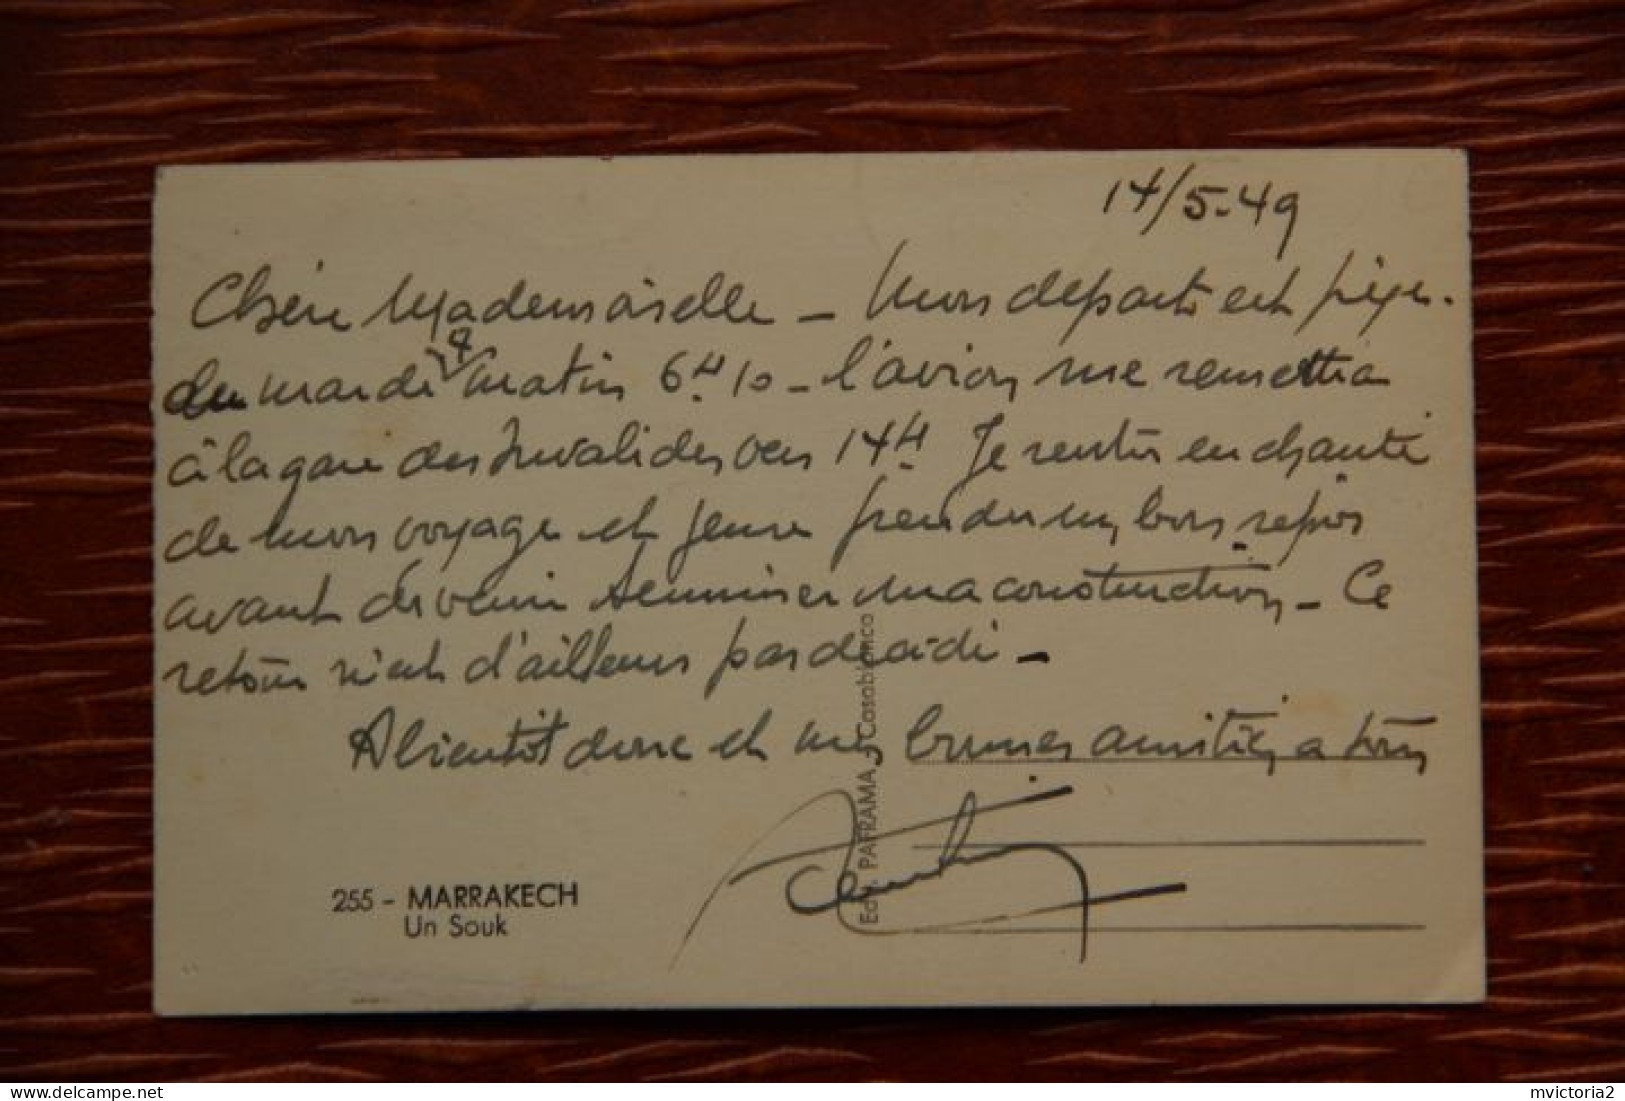 14/5-49
Chère Mademoiselle - Mon départ est fixé.
du mardi 17 matin 6H10 - l'avion me remettra
à la gare des Invalides vers 14H. Je rentre enchanté
de mon voyage et je me prendre un bon repos
avant de venir terminer ma construction - Ce
retour n'est d'ailleurs pas décidé -
A bientôt donc et mes bonnes amitiés à tous
255 - MARRAKECH
Un Souk
Edit. PAFRAMA - Casablanca
mvictoria2